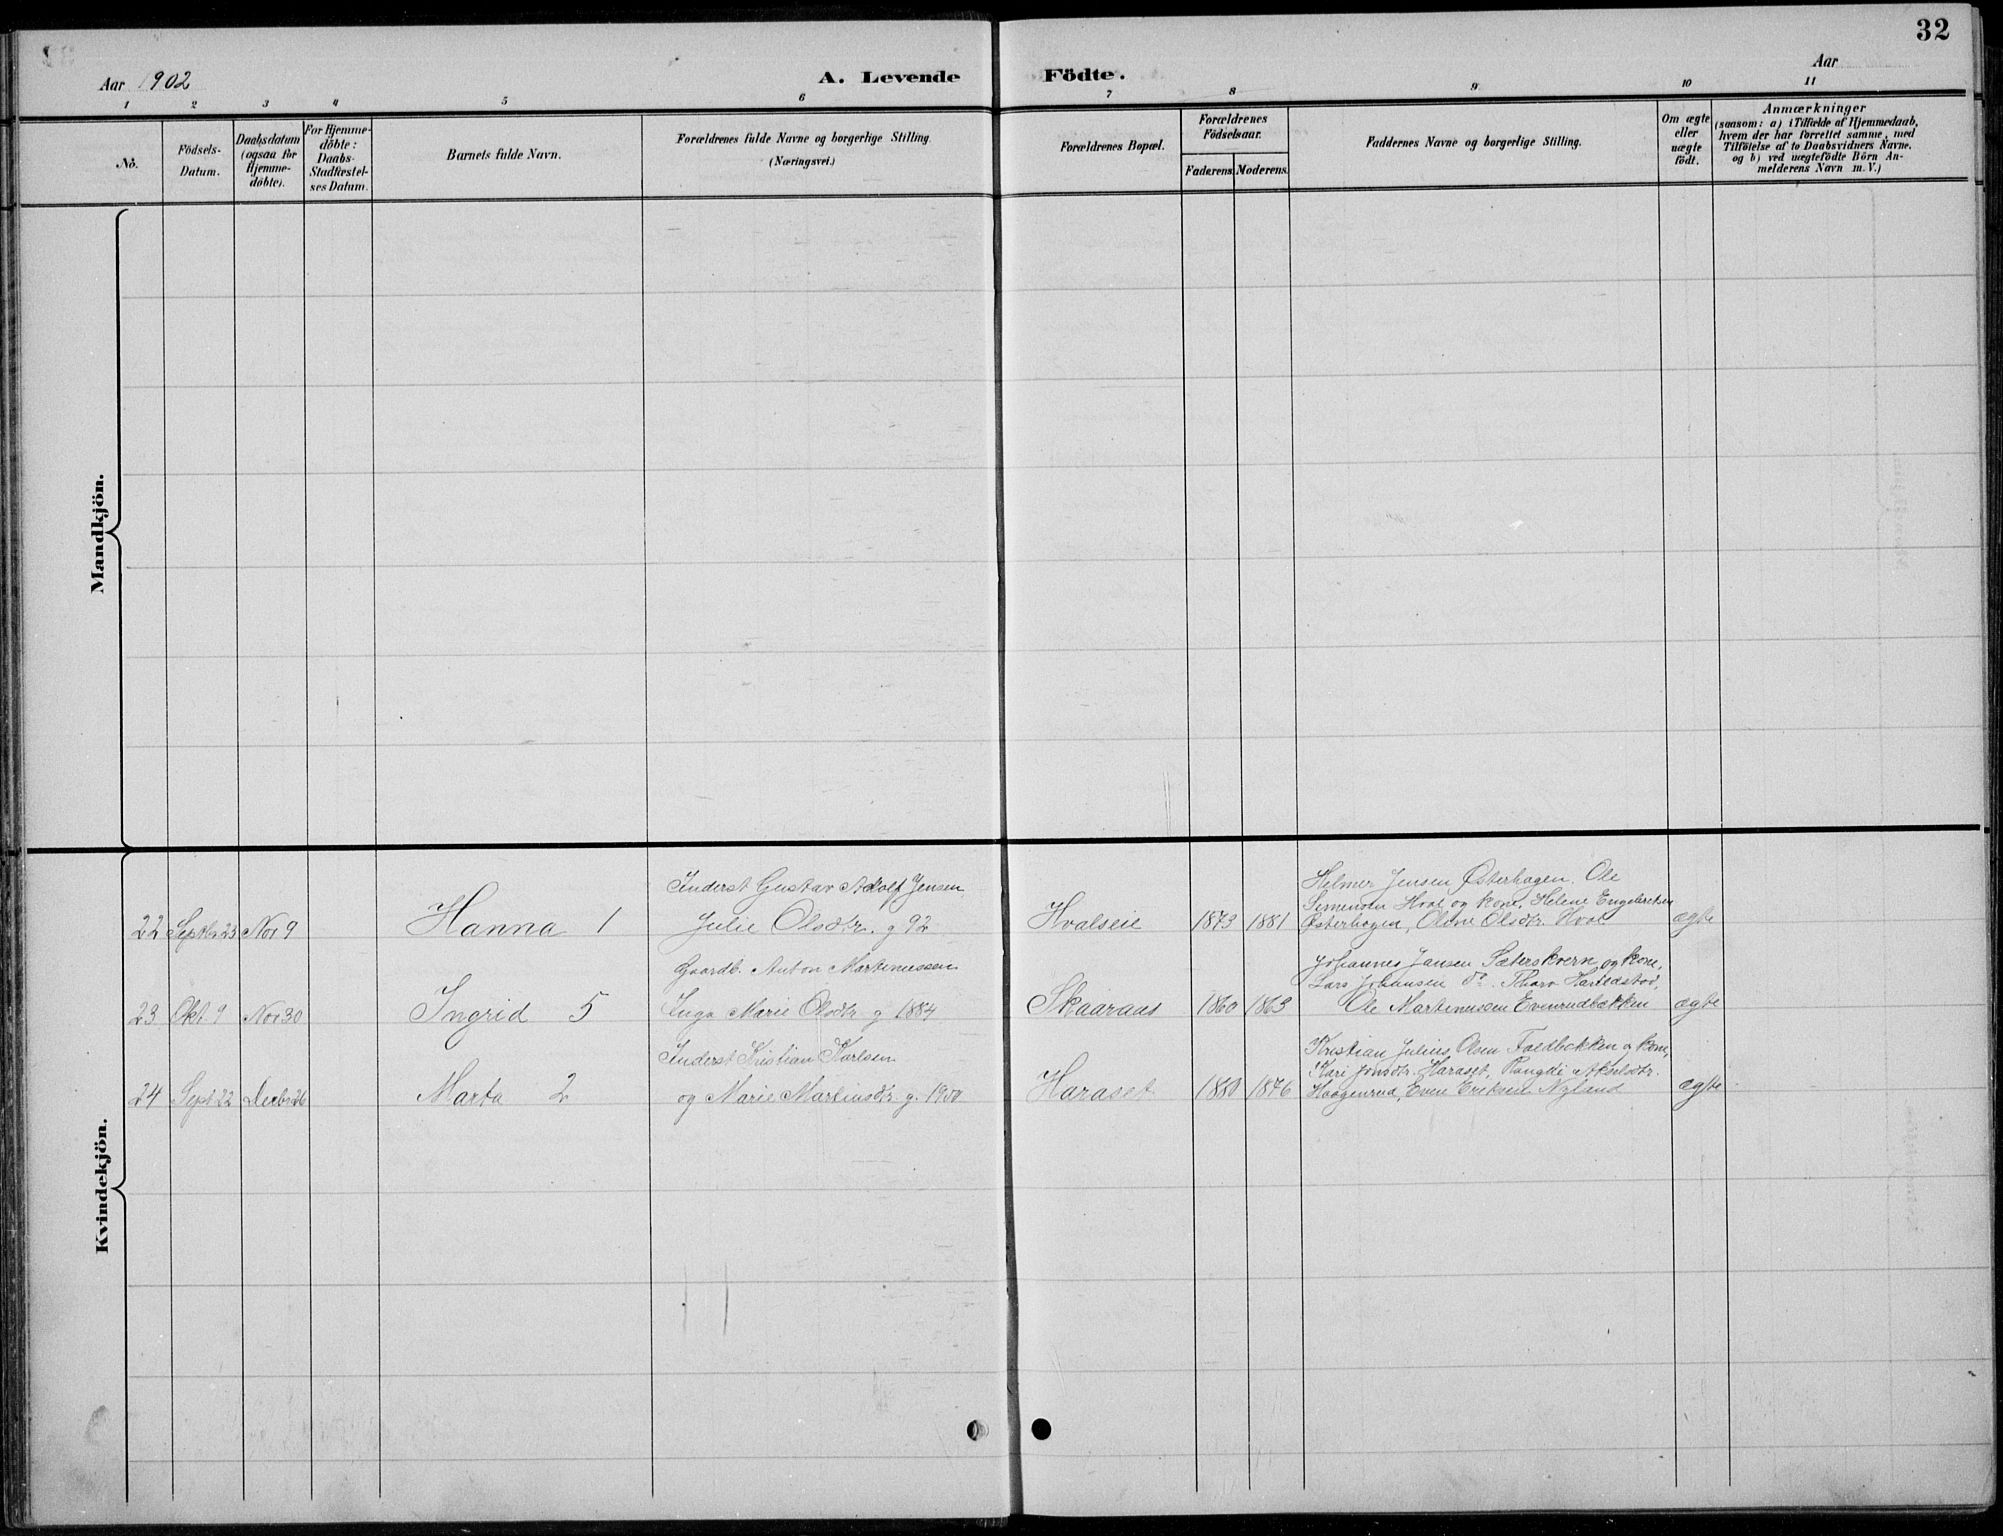 32
Aar 1902
A. Levende
Födte.
Aar
1 2 3 4 5 6 7 8 9 10 11
No.
Födsels-
Datum.
Daabsdatum
(ogsaa for
Hjemme-
döbte).
For Hjemme-
döbte:
Daabs-
Stadfæstel-
ses Datum.
Barnets fulde Navn.
Forældrenes fulde Navne og borgerlige Stilling.
(Næringsvei.)
Forældrenes Bopæl.
Forældrenes
Födselsaar.
Faderens. Moderens.
Faddernes Navne og borgerlige Stilling.
Om ægte
eller
uægte
födt.
Anmærkninger
(saasom: a) i Tilfælde af Hjemmedaab,
hvem der har forrettet samme, med
Tilföielse af to Daabsvidners Navne.
og b) ved uægtefödte Börn An-
melderens Navn m.V.)
Mandkjön.
Kvindekjön.
22 Septbr 23 Nov 9
Hanna 1
Inderst Gustav Adolf Jensen
Julie Olsdtr. g 92
Hvalseie
1873 1881
Helmer Jensen Østerhagen. Ole
Simensen Hval og kone, Helene Engebretsen
Østerhagen, Oline Olsdtr. Hval
ægte
23 Okt. 9 Nov 30
Ingrid 5
Gaardb. Anton Martinussen
Inga Marie Olsdtr g 1884
Skaaraas
1860 1863
Johannes Jansen Sæterskvern og kone,
Lars Johansen do. Thora
Ole Martinussen Evenrudbækken
ægte
24 Sept 22 Decbr 26
Marta 2
Inderst Kristian Karlsen
og Marie Martinsdtr. g. 1900
Haraset
1880 1876
Kristian Julius Olsen Foldbækken & kone,
Kari Jonsdtr. Haraset, Pangdi Akseldtr.
Haagenrud, Even Eriksen Nyland
ægte